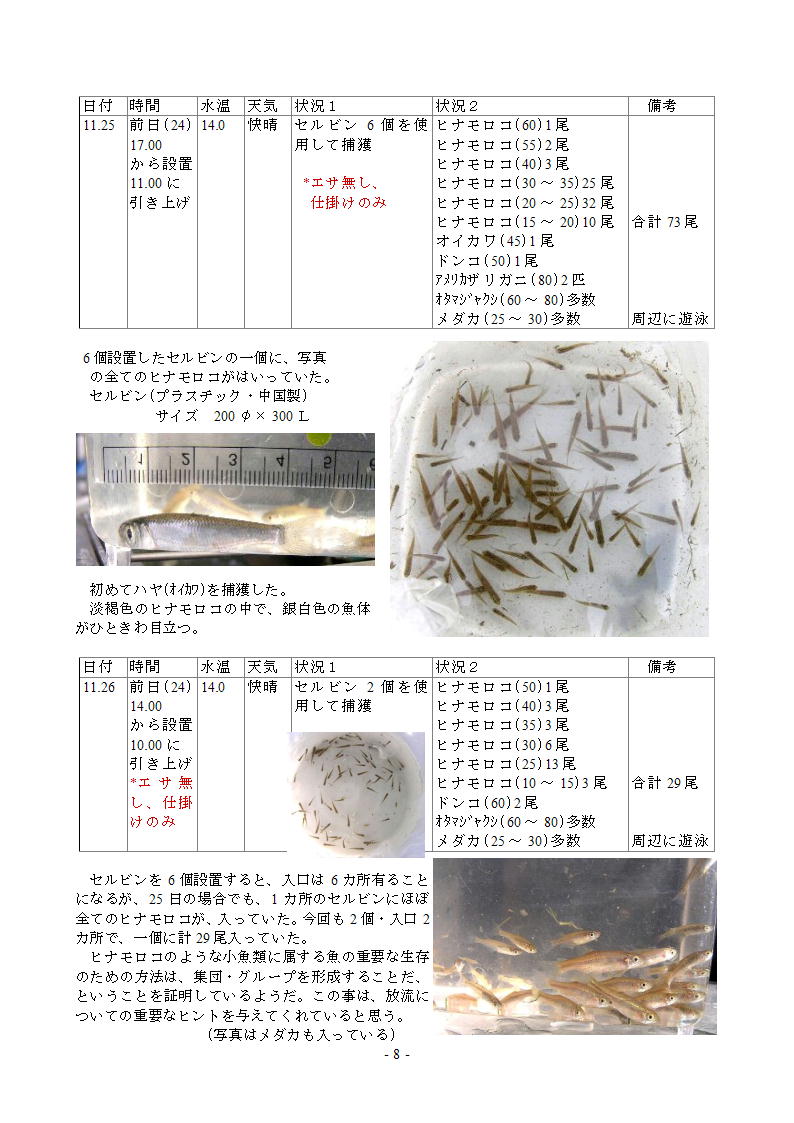 日付 時間 水温 天気 状況１ 状況２ 備考
11.25 前日(24) 14.0 快晴 セルビン 6 個を使 ヒナモロコ(60)1尾
17.00 用して捕獲 ヒナモロコ(55)2尾
から設置 ヒナモロコ(40)3尾
11.00 に *エサ無し、 ヒナモロコ(30 ～ 35)25尾
引き上げ 仕掛けのみ ヒナモロコ(20 ～ 25)32尾
ヒナモロコ(15 ～ 20)10尾 合計 73尾
オイカワ(45)1尾
ドンコ(50)1尾
ｱﾒﾘｶザリガニ(80)2匹
ｵﾀﾏｼﾞｬｸｼ(60～ 80)多数
メダカ(25～ 30)多数 周辺に遊泳
6個設置したセルビンの一個に、写真
の全てのヒナモロコがはいっていた。
セルビン(プラスチック・中国製)
サイズ 200 φ× 300 Ｌ
1 2 3 4 5 6
初めてハヤ(ｵｲｶﾜ)を捕獲した。
淡褐色のヒナモロコの中で、銀白色の魚体
がひときわ目立つ。
日付 時間 水温 天気 状況１ 状況２ 備考
11.26 前日(24) 14.0 快晴 セルビン 2 個を使 ヒナモロコ(50)1尾
14.00 用して捕獲 ヒナモロコ(40)3尾
から設置 ヒナモロコ(35)3尾
10.00 に ヒナモロコ(30)6尾
引き上げ ヒナモロコ(25)13尾
*エサ無 ヒナモロコ(10 ～ 15)3尾 合計 29尾
し、仕掛 ドンコ(60)2尾
けのみ ｵﾀﾏｼﾞｬｸｼ(60～ 80)多数
メダカ(25～ 30)多数 周辺に遊泳
セルビンを 6個設置すると、入口は 6カ所有ること
になるが、25 日の場合でも、1カ所のセルビンにほぼ
全てのヒナモロコが、入っていた。今回も 2個・入口2
カ所で、一個に計29尾入っていた。
ヒナモロコのような小魚類に属する魚の重要な生存
のための方法は、集団・グループを形成することだ、
ということを証明しているようだ。この事は、放流に
ついての重要なヒントを与えてくれていると思う。
(写真はメダカも入っている)
- 8 -